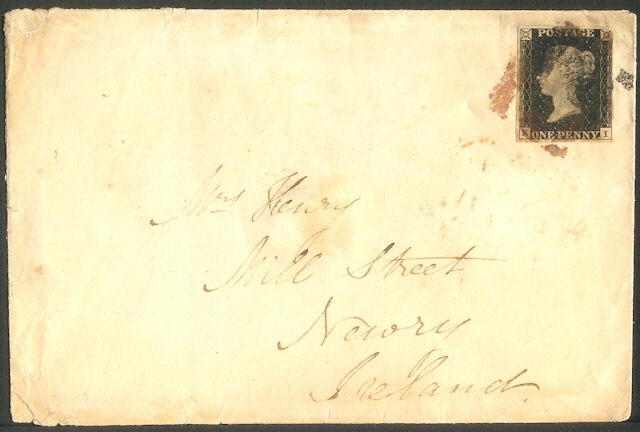 POSTAGE
ONE PENNY
I
Mrs Henry
Mill Street
Newry
Ireland